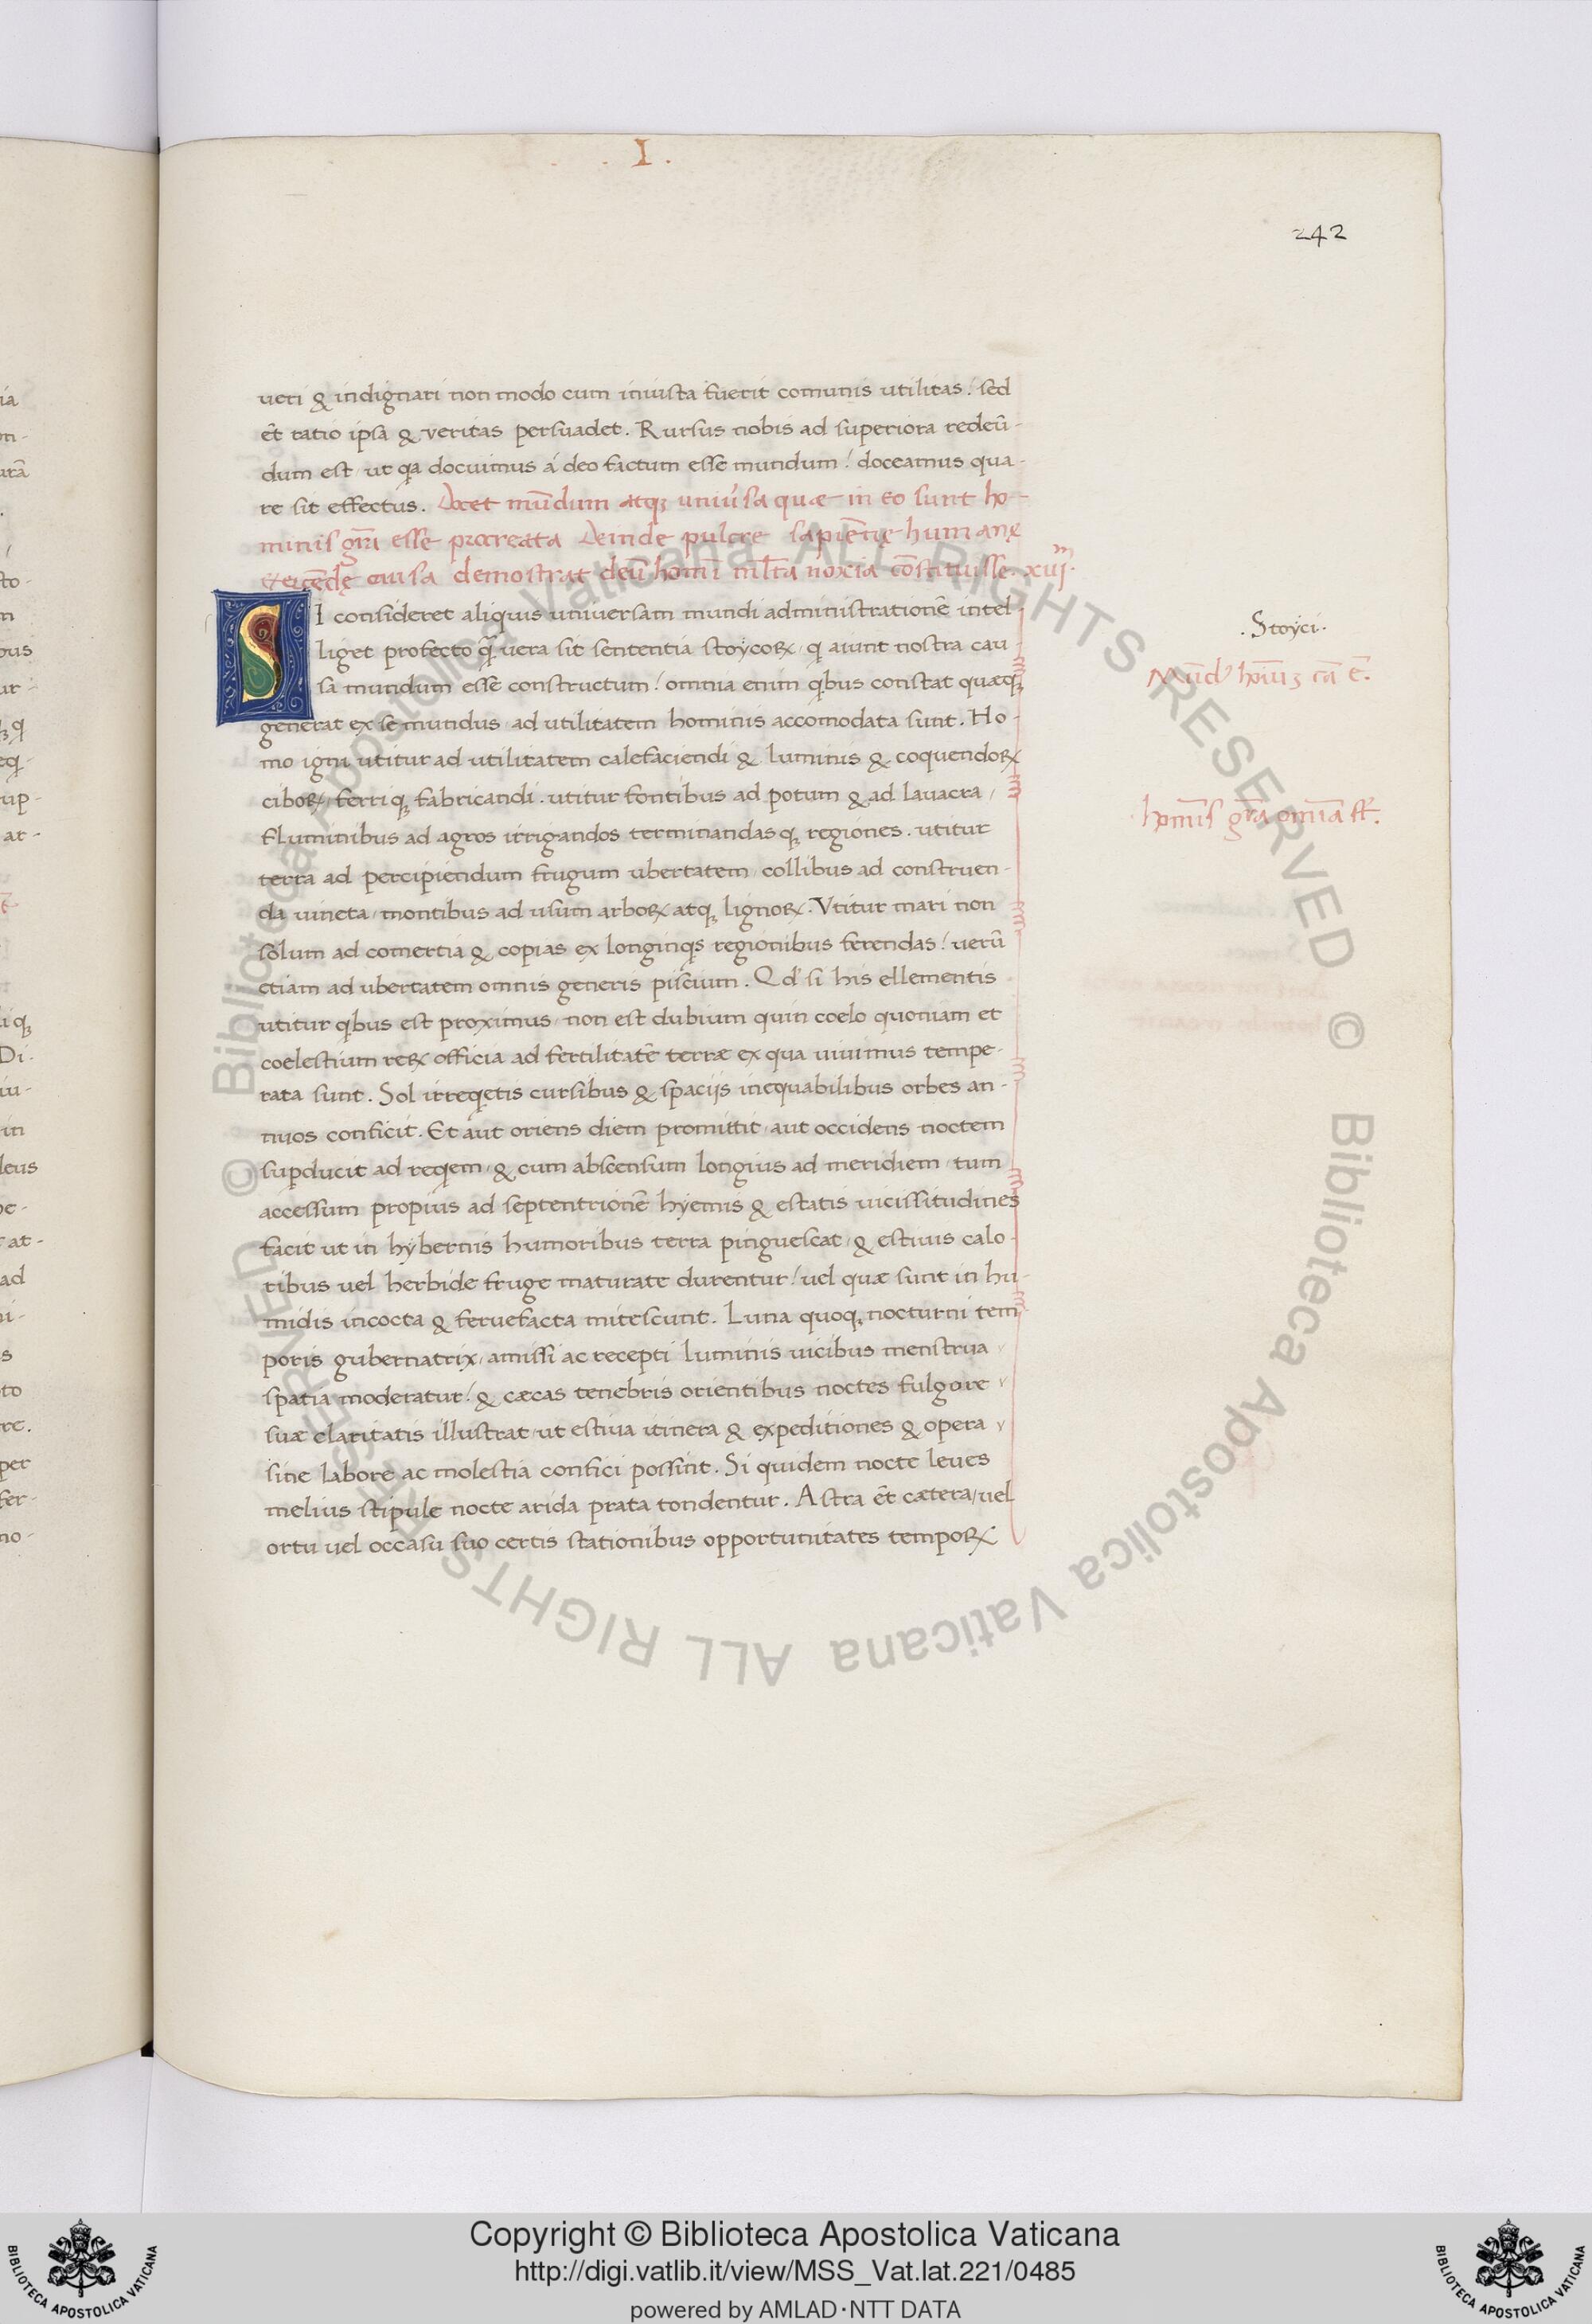 . I .
242
ueri & indignari non modo cum iniusta fuerit comunis utilitas! sed
et̄ ratio ipsa & veritas persuadet. Rursus nobis ad superiora redeū-
dum est, ut qa docuimus á deo factum esse mundum! doceamus qua-
re sit effectus. Docet mūdum atq; uniu'sa quæ in eo sunt ho-
minis gr̄a esse procreata Deinde pulcre sapiētię humanę
causa demostrat deū homī ml̄ta noxia cōstituisse. xiii.
SI consideret aliquis universam mundi administrationē intel-
liget profecto q̄ vera sit sententia stoycoꝝ, q aiunt nostra cau-
sa mundum esse constructum! omnia enim qbus constat quæq;
generat ex se mundus, ad utilitatem hominis accomodata sunt. Ho-
mo igni utitur ad utilitatem calefaciendi & luminis & coquendoꝝ
ciboꝝ, ferriq; fabricandi. utitur fontibus ad potum & ad lauacra,
fluminibus ad agros irrigandos terminandasq; regiones. utitur
terra ad percipiendum frugum ubertatem, collibus ad construen-
da uineta, montibus ad usum arboꝝ atq; lignoꝝ. Vtitur mari non
solum ad comertia & copias ex longinqs regionibus ferendas! uerū
etiam ad ubertatem omnis generis piscium. Qd' si his ellementis
utitur qbus est proximus, non est dubium quin coelo quoniam et
coelestium reꝝ officia ad fertilitatē terræ ex qua uiuimus tempe-
rata sunt. Sol irreqetis cursibus & spaciis inequabilibus orbes an-
nuos conficit. Et aut oriens diem promittit, aut occidens noctem
supducit ad reqem, & cum abscensum longius ad meridiem, tum
accessum propius ad septentrionē hyemis & estatis uicissitudines
facit ut in hybernis humoribus terra pinguescat, & estiuis calo-
ribus uel herbide fruge maturate durentur! uel quæ sunt in hu-
midis incocta & feruefacta mitescunt. Luna quoq; nocturni tem
poris gubernatrix, amissi ac recepti luminis uicibus menstrua
spatia moderatur! & cæcas tenebris orientibus noctes fulgore
suæ claritatis illustrat, ut estiua itinera & expeditiones & opera
sine labore ac molestia confici possint. Si quidem nocte leues
melius stipule nocte arida prata tondentur. Astra et̄ cætera, uel
ortu uel occasu suo certis stationibus opportunitates tempoꝝ
.Stoyci.
hom̄is gr̄a om̄ia st̄.
© Biblioteca Apostolica Vaticana ALL RIGHTS RESERVED © Biblioteca Apostolica Vaticana ALL RIGHTS RESERVED
Copyright © Biblioteca Apostolica Vaticana
http://digi.vatlib.it/view/MSS_Vat.lat.221/0485
powered by AMLAD·NTT DATA
BIBLIOTECA APOSTOLICA VATICANA
BIBLIOTECA APOSTOLICA VATICANA